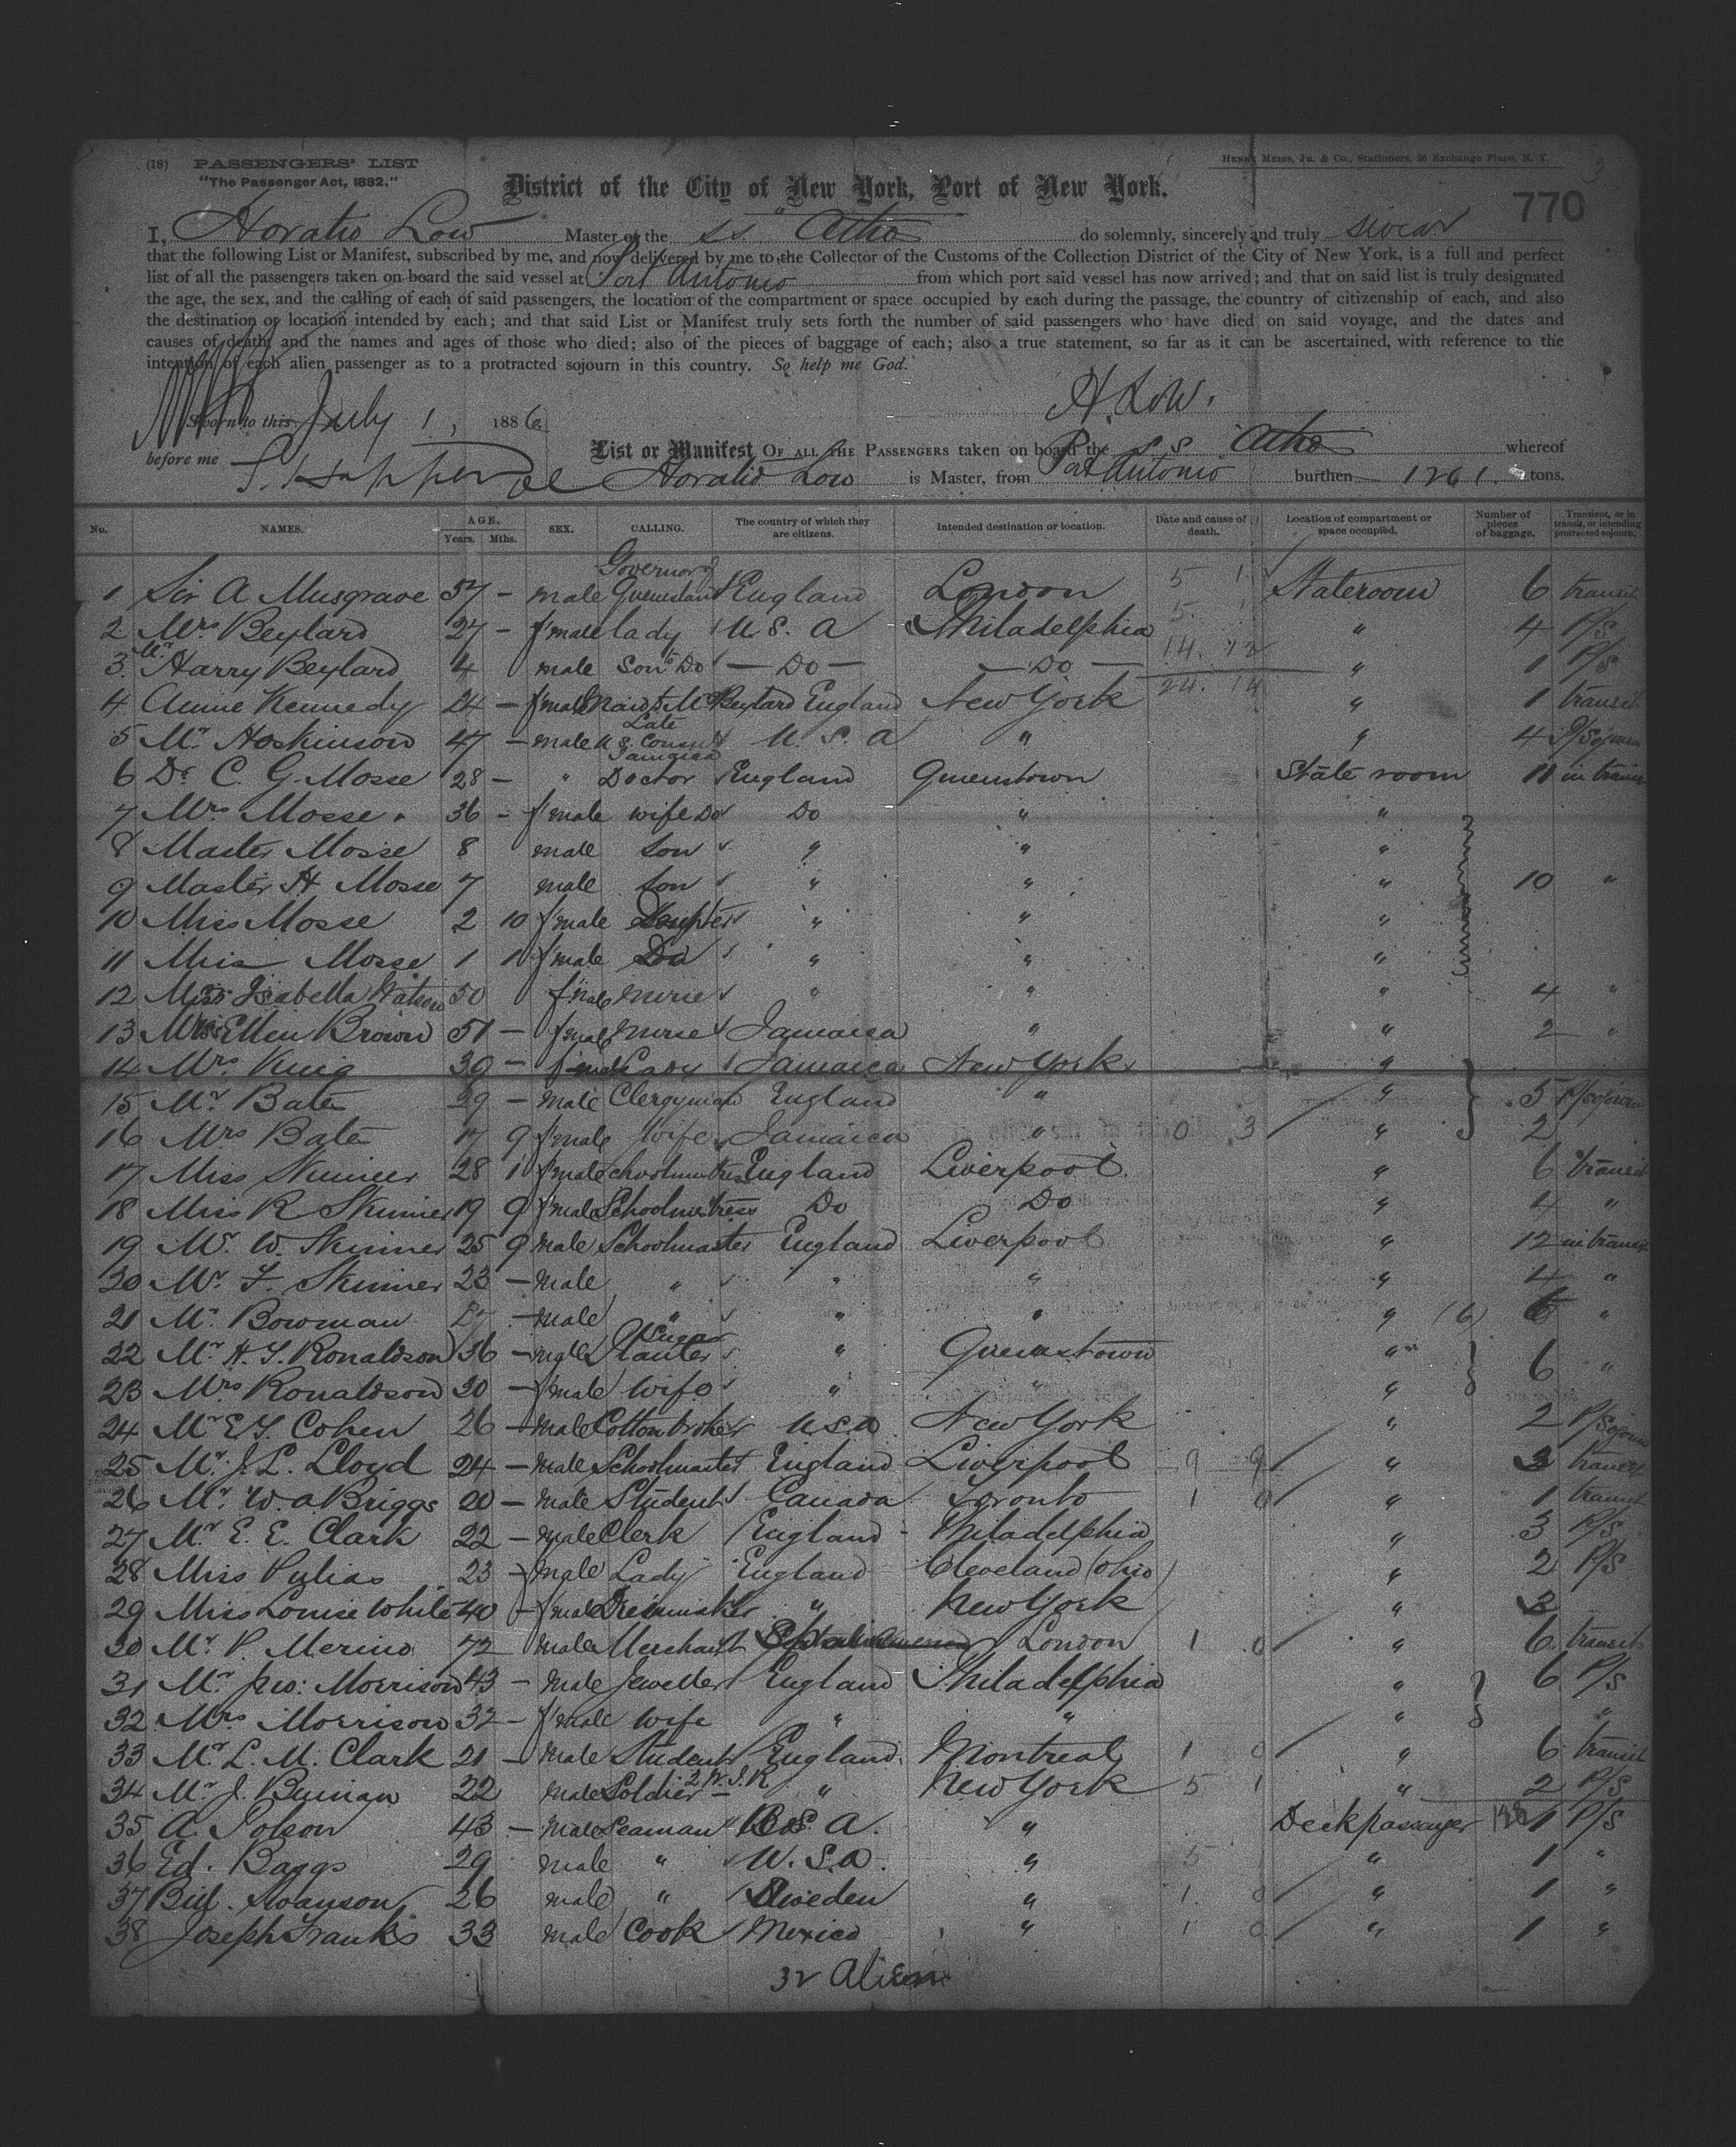 (18) PASSENGERS' LIST
"The Passenger Act, 1882."
HENRY MEIGS, JR. & CO., Stationers, 26 Exchange Place, N. Y.
District of the City of New York, Port of New York.
770
I, Horatio Low Master of the S.S. "Atho do solemnly, sincerely and truly swear
that the following List or Manifest, subscribed by me, and now delivered by me to the Collector of the Customs of the Collection District of the City of New York, is a full and perfect
list of all the passengers taken on board the said vessel at Port Antonio from which port said vessel has now arrived; and that on said list is truly designated
the age, the sex, and the calling of each of said passengers, the location of the compartment or space occupied by each during the passage, the country of citizenship of each, and also
the destination or location intended by each; and that said List or Manifest truly sets forth the number of said passengers who have died on said voyage, and the dates and
causes of death, and the names and ages of those who died; also of the pieces of baggage of each; also a true statement, so far as it can be ascertained, with reference to the
intention of each alien passenger as to a protracted sojourn in this country. So help me God.
H. Low.
Sworn to this July 1, 1886
List or Manifest OF ALL THE PASSENGERS taken on board the S S Atho whereof
before me Horatio Low is Master, from Port Antonio burthen 1261. tons.
No. NAMES. AGE. Years. Mths. SEX. CALLING. The country of which they are citizens. Intended destination or location. Date and cause of death. Location of compartment or space occupied. Number of pieces of baggage. Transient, or in transit, or intending protracted sojourn.
1 Sir A Musgrave 57 - male Governor of Queensland England London 5 1 Stateroom 6 transit
2 Mrs Beylard 27 - f'male lady U. S. A Philadelphia 5. 1 " 4 P/S
3. Mr Harry Beylard 4 male Son to Do - Do - - Do - 14. 12 " 1 P/S
4 Annie Kennedy 24 - f'male Maid to Mrs Beylard England New York 24. 14 " 1 transit
5 Mr Hoskinson 47 - male Late U S. Consul Jamaica U. S. A " " 4 P/Sojourn
6 Dr C. G. Mosse 28 - " Doctor England Queenstown State room 11 in transit
7 Mrs Mosse. 36 - f'male wife Do Do " "
8 Master Mosse 8 male son " " "
9 Master H Mosse 7 male son " " " 10 "
10 Miss Mosse 2 10 f'male Daughter " " "
11 Miss Mosse 1 1 f'male Do " " "
12 Miss Isabella Watson 50 f'male nurse " " " 4 "
13 Mrs Ellen Brown 51 - f'male nurse Jamaica " " 2 "
14 Mrs King 39 - f'male Lady Jamaica New York "
15 Mr Bate 29 - male Clergyman England " " 5 P/sojourn
16 Mrs Bate 17 9 f'male wife Jamaica " 0 3 " 2
17 Miss Skinner 28 1 f'male Schoolmistress England Liverpool " 6 transit
18 Miss R Skinner 19 9 f'male Schoolmistress Do Do " 4 "
19 Mr. W. Skinner 25 9 male Schoolmaster England Liverpool " 12 in transit
20 Mr. F. Skinner 23 - male " " " " 4 "
21 Mr. Bowman - male " " " " (6) 6 "
22 Mr H. S. Ronaldson 36 - male Sugar Planter " Queenstown " 6 "
23 Mrs Ronaldson 30 - f'male wife " " "
24 Mr E S. Cohen 26 - male Cotton broker U S A New York " 2 P/Sojourn
25 Mr. J. L. Lloyd 24 - male Schoolmaster England Liverpool 9 9 " 3 transit
26 Mr. W. A Briggs 20 - male Student Canada Toronto 1 0 " 1 transit
27 Mr. E. E. Clark 22 - male Clerk England Philadelphia " 3 P/S
28 Miss Pylias 23 - f'male Lady England Cleveland (Ohio) " 2 P/S
29 Miss Louise White 40 - f'male Dressmaker " New York " 3
30 Mr. P. Merino 72 male Merchant London 1 0 " 6. transit
31 Mr Jno: Morrison 43 - male Jeweller England Philadelphia " 6 P/S
32 Mrs Morrison 32 - f'male wife " " " "
33 Mr L. M. Clark 21 - male Student England Montreal 1 0 " 6 transit
34 Mr. J. Buinan 22 male Soldier 2 W. I. R " New York 5 1 " 2 P/S
35 A. Polson 43 - male Seaman U.S. A. " Deck passenger 1 P/S
36 Ed. Baggs 29 male " U. S. A. " 5 " 1 "
37 Bill. Swanson 26 male " Sweden " 1. 0 " 1 "
38 Joseph Franks 33 male Cook Mexico " 1 0 " 1 "
32 Aliens